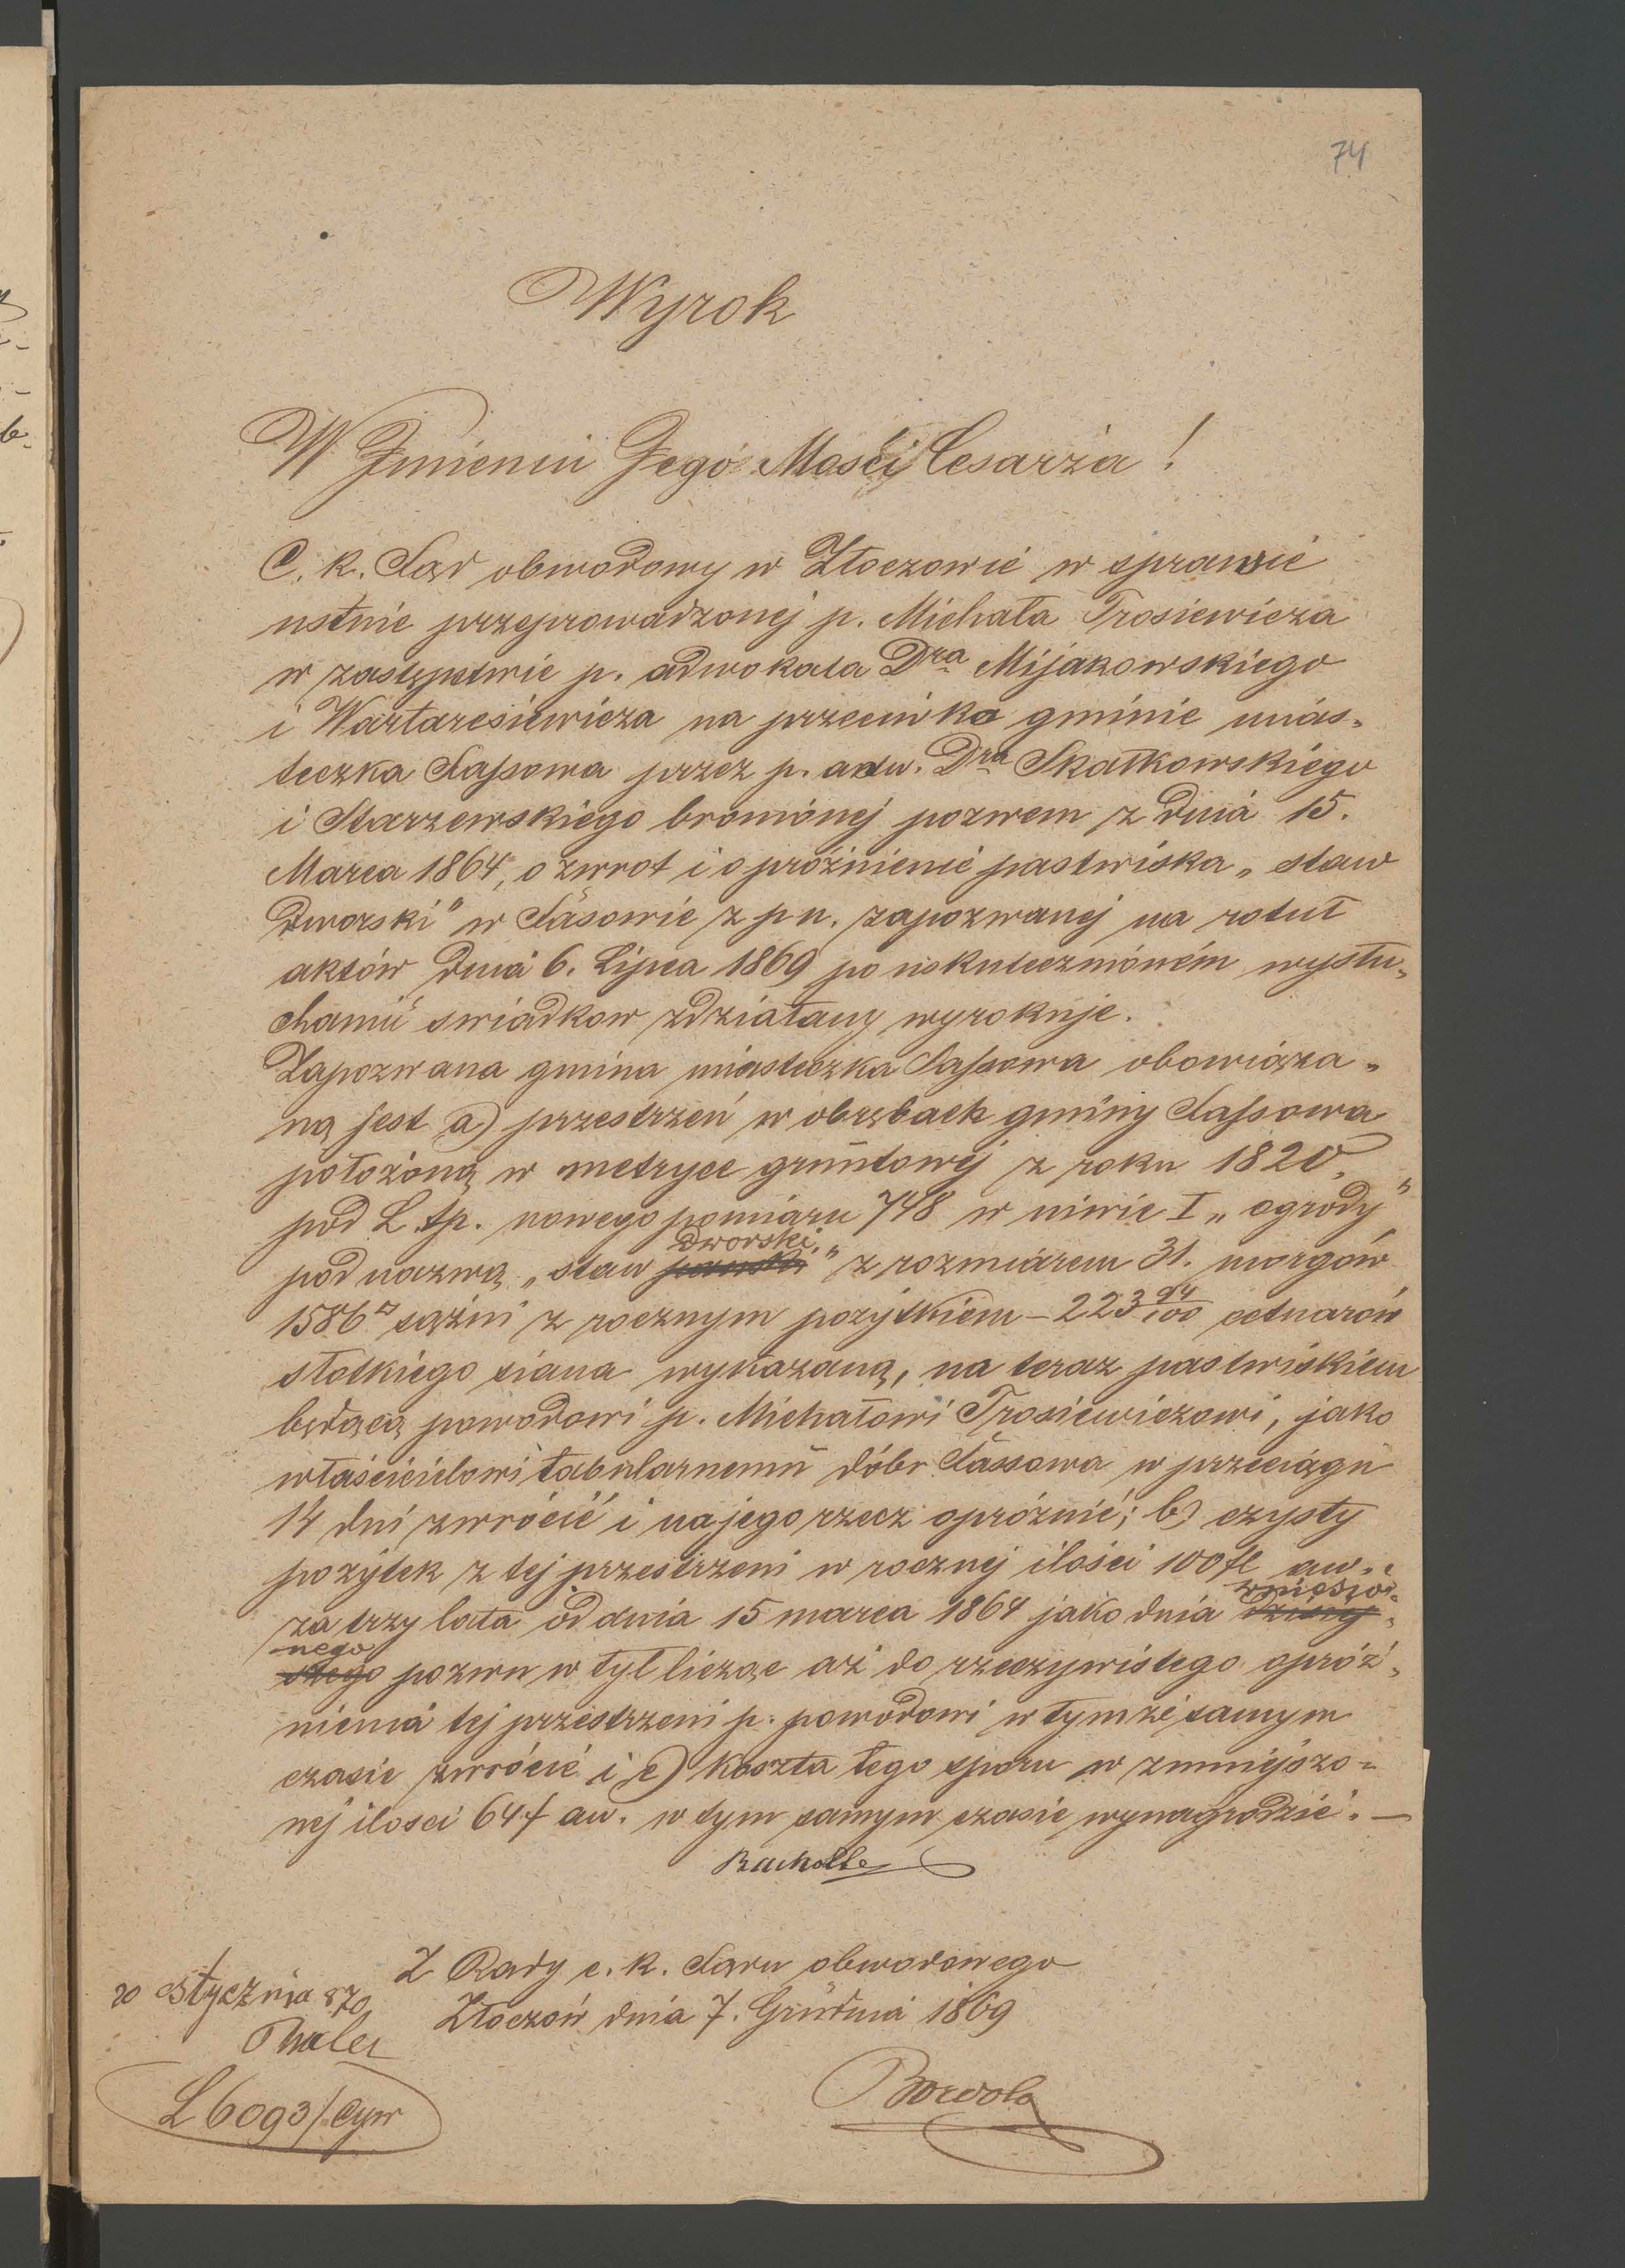 74
Wyrok
W Imieniu Jego Mości Cesarza!
C. k. Sąd obwodowy w Złoczowie w sprawie
ustnie przeprowadzonej p. Michała Trosiewicza
w zastępstwie p. adwokata Dra Mijakowskiego
i Wartaresiewicza na przeciwko gminie mias-
teczka Sassowa przez p. adw. Dra Skałkowskiego
i Starzewskiego bronionej pozwem z dnia 15.
Marca 1864, o zwrot i opróżnienie pastwiska „staw
dworski" w Sasowie z pn. zapozwanej na rotuł
aktów dnia 6. Lipca 1869 po uskutecznioném wysłu-
chaniu swiadkow zdziałany wyrokuje.
Zapozwana gmina miasteczka Sassowa obowiąza-
ną jest a) przestrzeń w obrębach gminy Sassowa
położoną w metryce gruntowej z roku 1820.
pod L. tp. nowego pomiaru 748 w niwie I „ogrody"
pod nazwą „staw dworski" z rozmiarem 31. morgów
1586□ sążni z rocznym pożytkiem – 223 94/100 cetnarów
słodkiego siana wykazaną, na teraz pastwiskiem
będącą powodowi p. Michałowi Trosiewiczowi, jako
właścicielowi tabularnemu dóbr Sassowa w przeciągu
14 dni zwrócić i na jego rzecz opróżnić; b) czysty
pożytek z tej przestrzeni w rocznej ilości 100 fl aw.
za trzy lata od dnia 15 marca 1864 jako dnia wniesio-
nego pozwu w tył licząc aż do rzeczywistego opróż-
nienia tej przestrzeni p. powodowi w tymże samym
czasie zwrócić i c) koszta tego sporu w zmniejszo-
nej ilosci 64 f aw. w tym samym czasie wynagrodzić. —
Z Rady c. k. Sądu obwodowego
Złoczów dnia 7. Grudnia 1869
20 Stycznia 870
Thaler
L 6093/Cyw